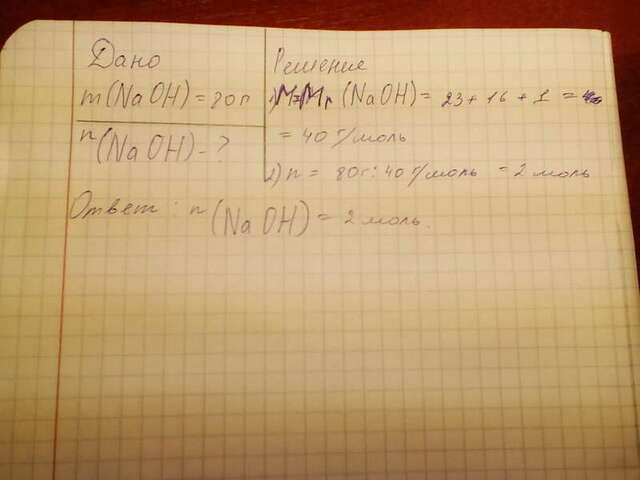 Дано
m(NaOH)=80г
n(NaOH)-?
Решение
1) M=Mr (NaOH)= 23+16+1 =
= 40 г/моль
2) n = 80г:40 г/моль = 2 моль
Ответ: n(NaOH)= 2 моль.